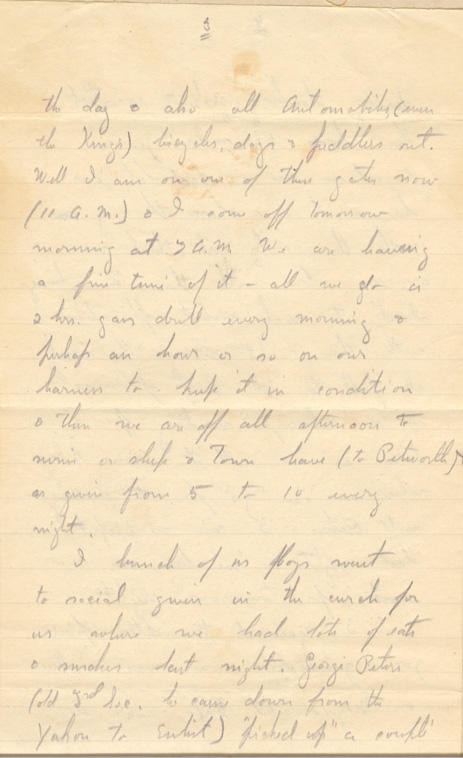 3
the day & also all Automobiles (even
the King's) bicycles, dogs & peddlers out.
Well I am on one of the gates now
(11 a.m.) & I come off Tomorrow
morning at 7 a.m. We are having
a fine time of it - all we do is
2 hrs. gun drill every morning &
perhaps an hour or so on our
harness to keep it in condition
& then we are off all afternoon to
swim or sleep & Town leave (to Petworth)
is given from 5 to 10 every
night.
A bunch of us Boys went
to social given in the curch for
us where we had lots of eats
& smokes last night. George Peters
(old 3rd Sec. he came down from the
Yukon to Enlist) "picked up" a couple